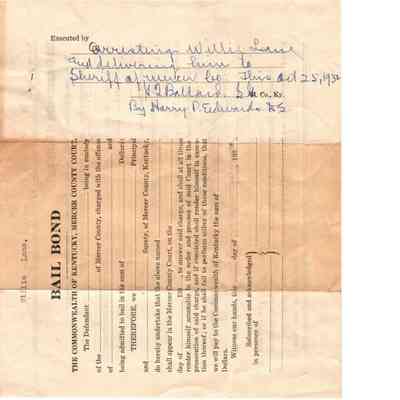 Executed by
Arresting Willie Lane
and delivering him to
Sheriff of Mercer Co. This Oct 25, 193
By Harry P. Edwards D.S.
Willie Lane,
BAIL BOND
THE COMMONWEALTH OF KENTUCKY, MERCER COUNTY COURT.
The Defendant being in custody
of the of Mercer County, charged with the offense
of and
being admitted to bail in the sum of Dollars
THEREFORE, we Principal
and Surety, of Mercer County, Kentucky,
do hereby undertake that the above named
shall appear in the Mercer County Court, on the
day of 193 , to answer said charge, and shall at all times
render himself amenable to the order and process of said Court in the
prosecution of said charge, and if convicted shall render himself in execu-
tion thereof; or if he shall fail to perform either of these conditions, that
we will pay to the Commonwealth of Kentucky the sum of
Dollars.
Witness our hands, the day of 193
Subscribed and acknowledged
in presence of